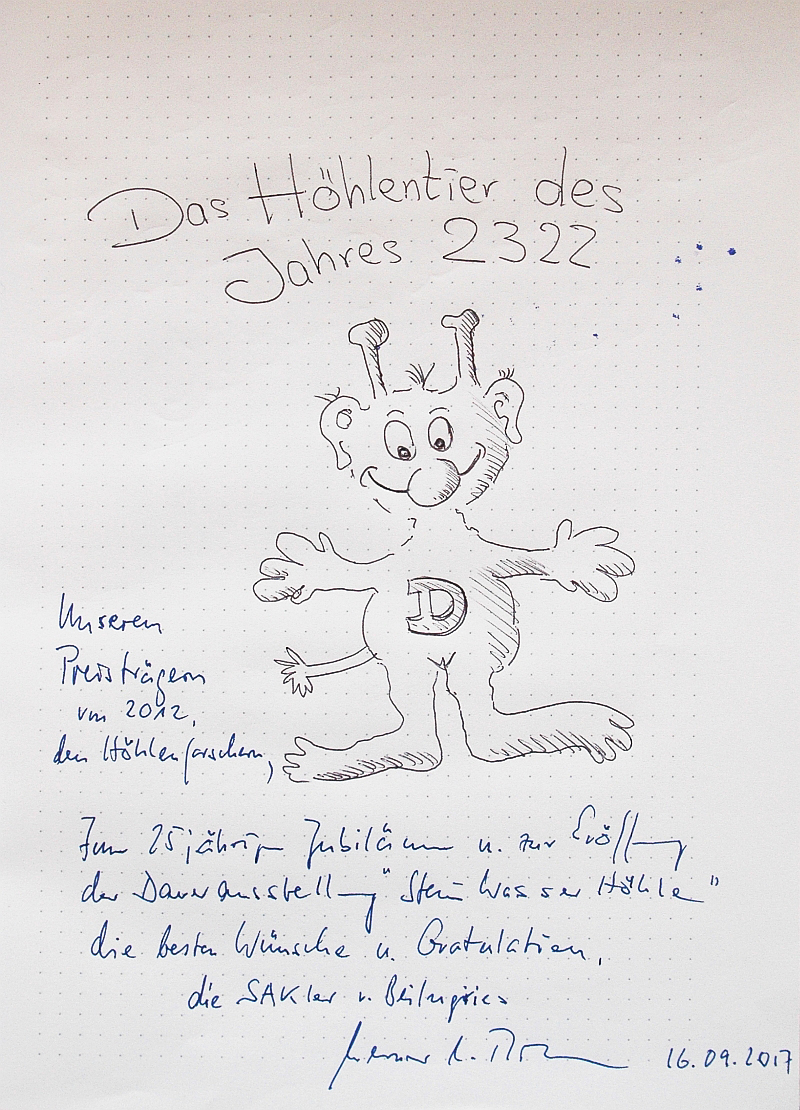 Das Höhlentier des
Jahres 2322
D
Unseren
Preisträgern
von 2012,
den Höhlenforschern,
Zum 25jährig Jubiläum u. zur Eröffnung
der Dauerausstellung "Stein Wasser Höhle"
die besten Wünsche u. Gratulation,
die SAKler v. Beilngries
16.09.2017